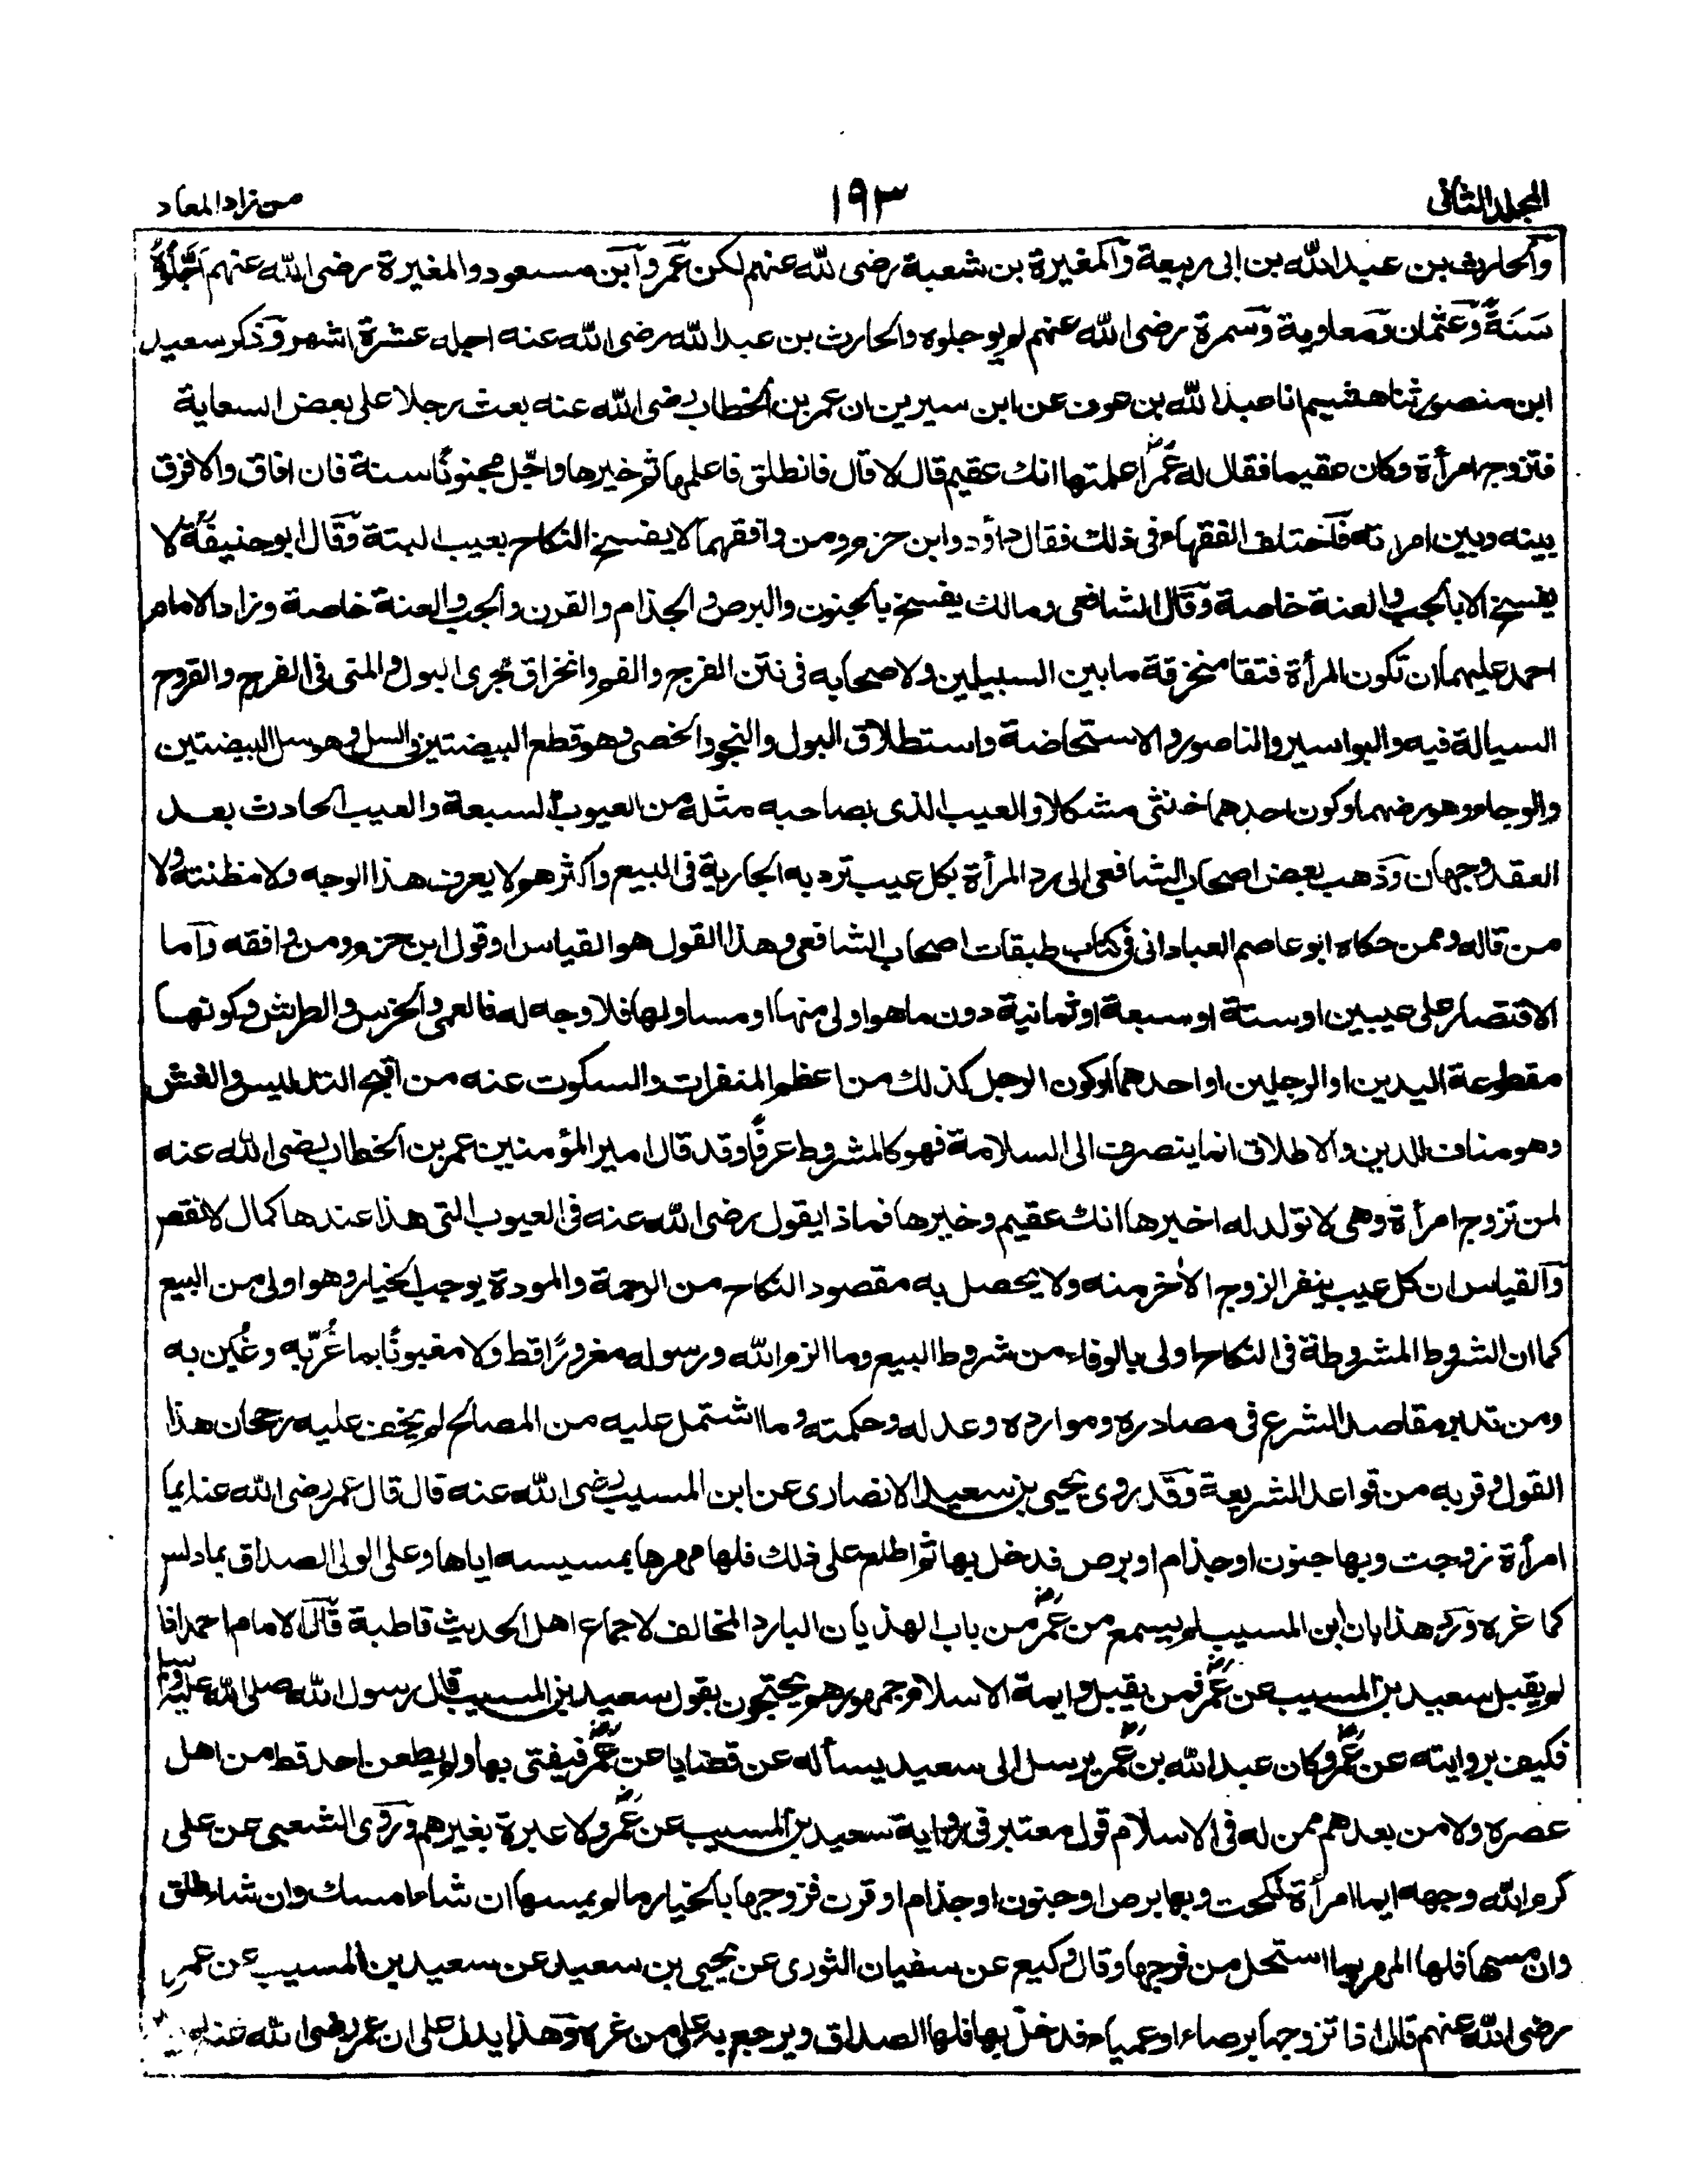 المجلد الثاني
١٩٣
من زاد المعاد
والحارث بن عبد الله بن ابى ربيعة والمغيرة بن شعبة رضى الله عنهم لكن عمر وابن مسعود والمغيرة رضى الله عنهم اجلوه
سنة وعثمان ومعاوية وسمرة رضى الله عنهم لم يوجلوه والحارث بن عبد الله رضى الله عنه اجله عشرة اشهر وذكر سعيد
ابن منصور ثنا هشيم انا عبد الله بن عوف عن ابن سيرين ان عمر بن الخطاب رضى الله عنه بعث رجلا على بعض السعاية
فتزوج امرأة وكان عقيما فقال له عمرؓ اعلمتها انك عقيم قال لا قال فانطلق فاعلمها ثم خيرها واجّل مجنونًا سنة فان افاق والا فرق
بينه وبين امرأته فاختلف الفقهاء فى ذلك فقال داؤد وابن حزم ومن وافقهما لا يفسخ النكاح بعيب البتة وقال ابو حنيفة لا
يفسخ الا بالجب والعنة خاصة وقال الشافعى ومالك يفسخ بالجنون والبرص والجذام والقرن والجب والعنة خاصة وزاد الامام
احمد عليهما ان تكون المرأة فتقا منخرقة ما بين السبيلين ولاصحابه فى نتن الفرج والفم وانخراق مجرى البول والمنى فى الفرج والقروح
السيالة فيه والبواسير والناصور والاستحاضة واستطلاق البول والنجو والخصى وهو قطع البيضتين والسل وهو سل البيضتين
والوجاء وهو رضهما وكون احدهما خنثى مشكلا والعيب الذى بصاحبه مثله من العيوب السبعة والعيب الحادث بعد
العقد وجهان وذهب بعض اصحاب الشافعى الى رد المرأة بكل عيب ترد به الجارية فى البيع واكثرهم لا يعرف هذا الوجه ولا مظنته ولا
من قاله وممن حكاه ابو عاصم العبادانى فى كتاب طبقات اصحاب الشافعى وهذا القول هو القياس او قول ابن حزم ومن وافقه واما
الاقتصار على عيبين او ستة او سبعة او ثمانية دون ما هو اولى منها او مساو لها فلا وجه له فالعمى والخرس والطرش وكونها
مقطوعة اليدين او الرجلين او احدهما او كون الرجل كذلك من اعظم المنفرات والسكوت عنه من اقبح التدليس والغش
وهو مناف للدين والاطلاق انما ينصرف الى السلامة فهو كالمشروط عرفًا وقد قال امير المؤمنين عمر بن الخطاب رضى الله عنه
لمن تزوج امرأة وهى لا تولد له اخبرها انك عقيم وخيرها فماذا يقول رضى الله عنه فى العيوب التى هذا عندها كمال لا نقص
والقياس ان كل عيب ينفر الزوج الاخر منه ولا يحصل به مقصود النكاح من الرحمة والمودة يوجب الخيار وهو اولى من البيع
كما ان الشروط المشروطة فى النكاح اولى بالوفاء من شروط البيع وما الزم الله ورسوله مغرورًا قط ولا مغبونًا بما غُرّ به وغُبن به
ومن تدبر مقاصد الشرع فى مصادره وموارده وعدله وحكمته وما اشتمل عليه من المصالح لم يخف عليه رجحان هذا
القول وقربه من قواعد الشريعة وقد روى يحيى بن سعيد الانصارى عن ابن المسيب رضى الله عنه قال قال عمر رضى الله عنه ايما
امرأة زوجت وبها جنون او جذام او برص فدخل بها ثم اطلع على ذلك فلها مهرها بمسيسه اياها وعلى الولى الصداق بما دلس
كما غره ورد هذا بان ابن المسيب لم يسمع من عمرؓ من باب الهذيان البارد المخالف لاجماع اهل الحديث قاطبة قال الامام احمد اذا
لم يقبل سعيد بن المسيب عن عمرؓ فمن يقبل وايمة الاسلام وجمهورهم يحتجون بقول سعيد بن المسيب قال رسول الله صلى الله عليه وسلم
فكيف بروايته عن عمرؓ وكان عبد الله بن عمرؓ يرسل الى سعيد يسأله عن قضايا عن عمرؓ فيفتى بها ولم يطعن احد قط من اهل
عصره ولا من بعدهم ممن له فى الاسلام قول معتبر فى رواية سعيد بن المسيب عن عمرؓ ولا عبرة بغيرهم وروى الشعبى عن على
كرم الله وجهه ايما امرأة نكحت وبها برص او جنون او جذام او قرن فزوجها بالخيار ما لم يمسها ان شاء امسك وان شاء طلق
وان مسها فلها المهر بما استحل من فرجها وقال وكيع عن سفيان الثورى عن يحيى بن سعيد عن سعيد بن المسيب عن عمر
رضى الله عنهم قال اذا تزوجها برصاء او عمياء فدخل بها فلها الصداق ويرجع به على من غره وهذا يدل على ان عمر رضى الله عنه لم